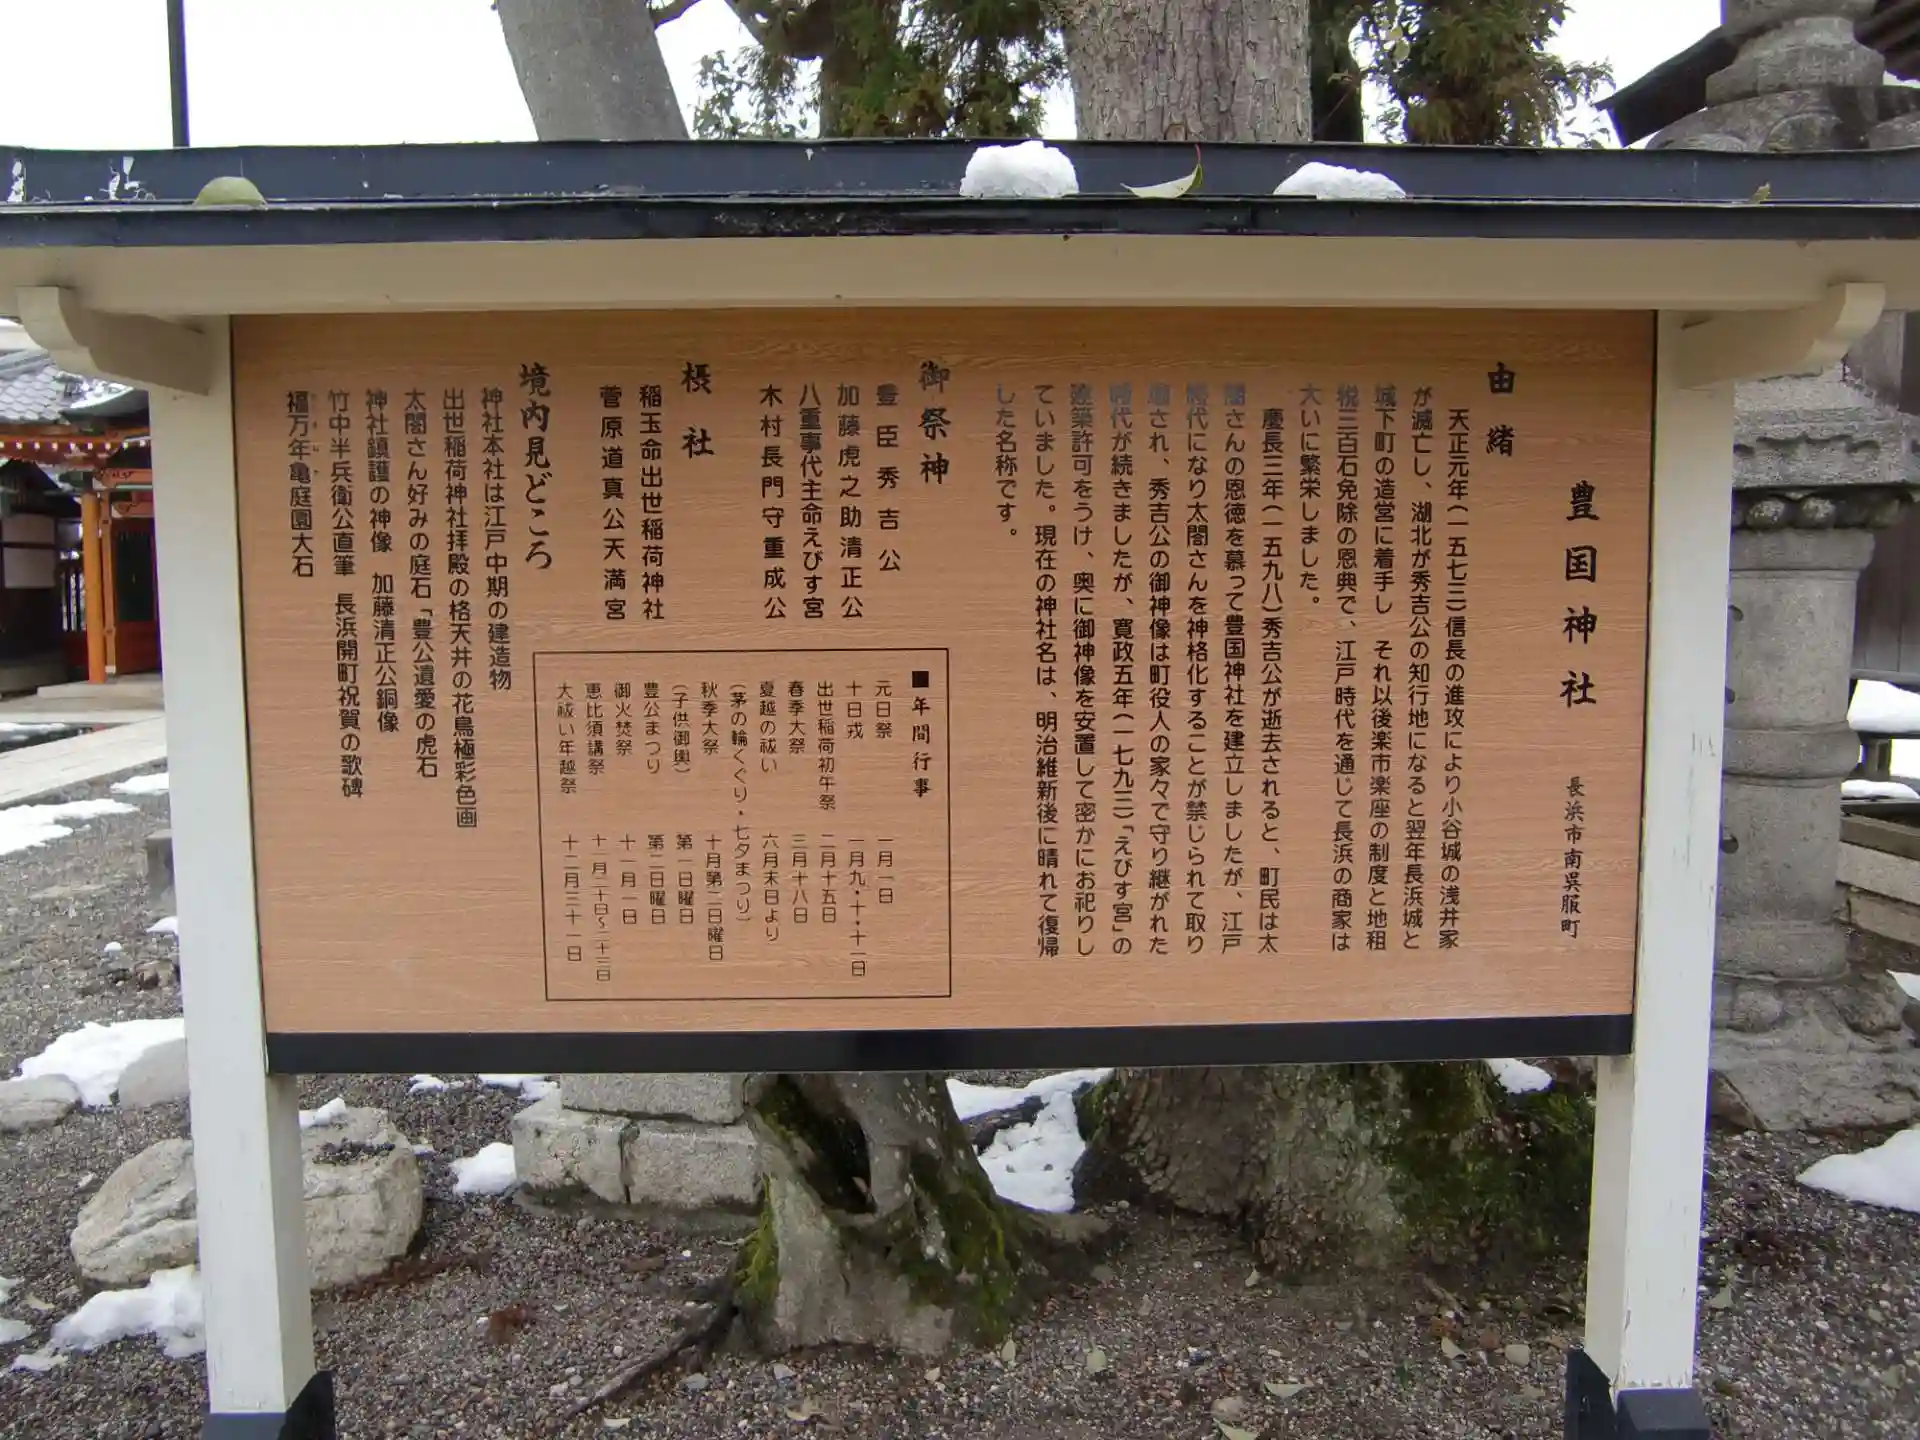 豊国神社 長浜市南呉服町
由緒
天正元年(一五七三)信長の進攻により小谷城の浅井家
が滅亡し、湖北が秀吉公の知行地になると翌年長浜城と
城下町の造営に着手し それ以後楽市楽座の制度と地租
税三百石免除の恩典で、江戸時代を通じて長浜の商家は
大いに繁栄しました。
慶長三年(一五九八)秀吉公が逝去されると、町民は太
閤さんの恩徳を慕って豊国神社を建立しましたが、江戸
時代になり太閤さんを神格化することが禁じられて取り
壊され、秀吉公の御神像は町役人の家々で守り継がれた
時代が続きましたが、寛政五年(一七九三)「えびす宮」の
建築許可をうけ、奥に御神像を安置して密かにお祀りし
ていました。現在の神社名は、明治維新後に晴れて復帰
した名称です。
御祭神
豊臣秀吉公
加藤虎之助清正公
八重事代主命えびす宮
木村長門守重成公
摂社
稲玉命出世稲荷神社
菅原道真公天満宮
■年間行事
元日祭 一月一日
十日戎 一月九・十・十一日
出世稲荷初午祭 二月十五日
春季大祭 三月十八日
夏越の祓い 六月末日より
(茅の輪くぐり・七夕まつり)
秋季大祭 十月第二日曜日
(子供御輿) 第一日曜日
豊公まつり 第二日曜日
御火焚祭 十一月一日
恵比須講祭 十一月二十日~二十三日
大祓い年越祭 十二月三十一日
境内見どころ
神社本社は江戸中期の建造物
出世稲荷神社拝殿の格天井の花鳥極彩色画
太閤さん好みの庭石「豊公遺愛の虎石
神社鎮護の神像 加藤清正公銅像
竹中半兵衛公直筆 長浜開町祝賀の歌碑
福万年亀庭園大石